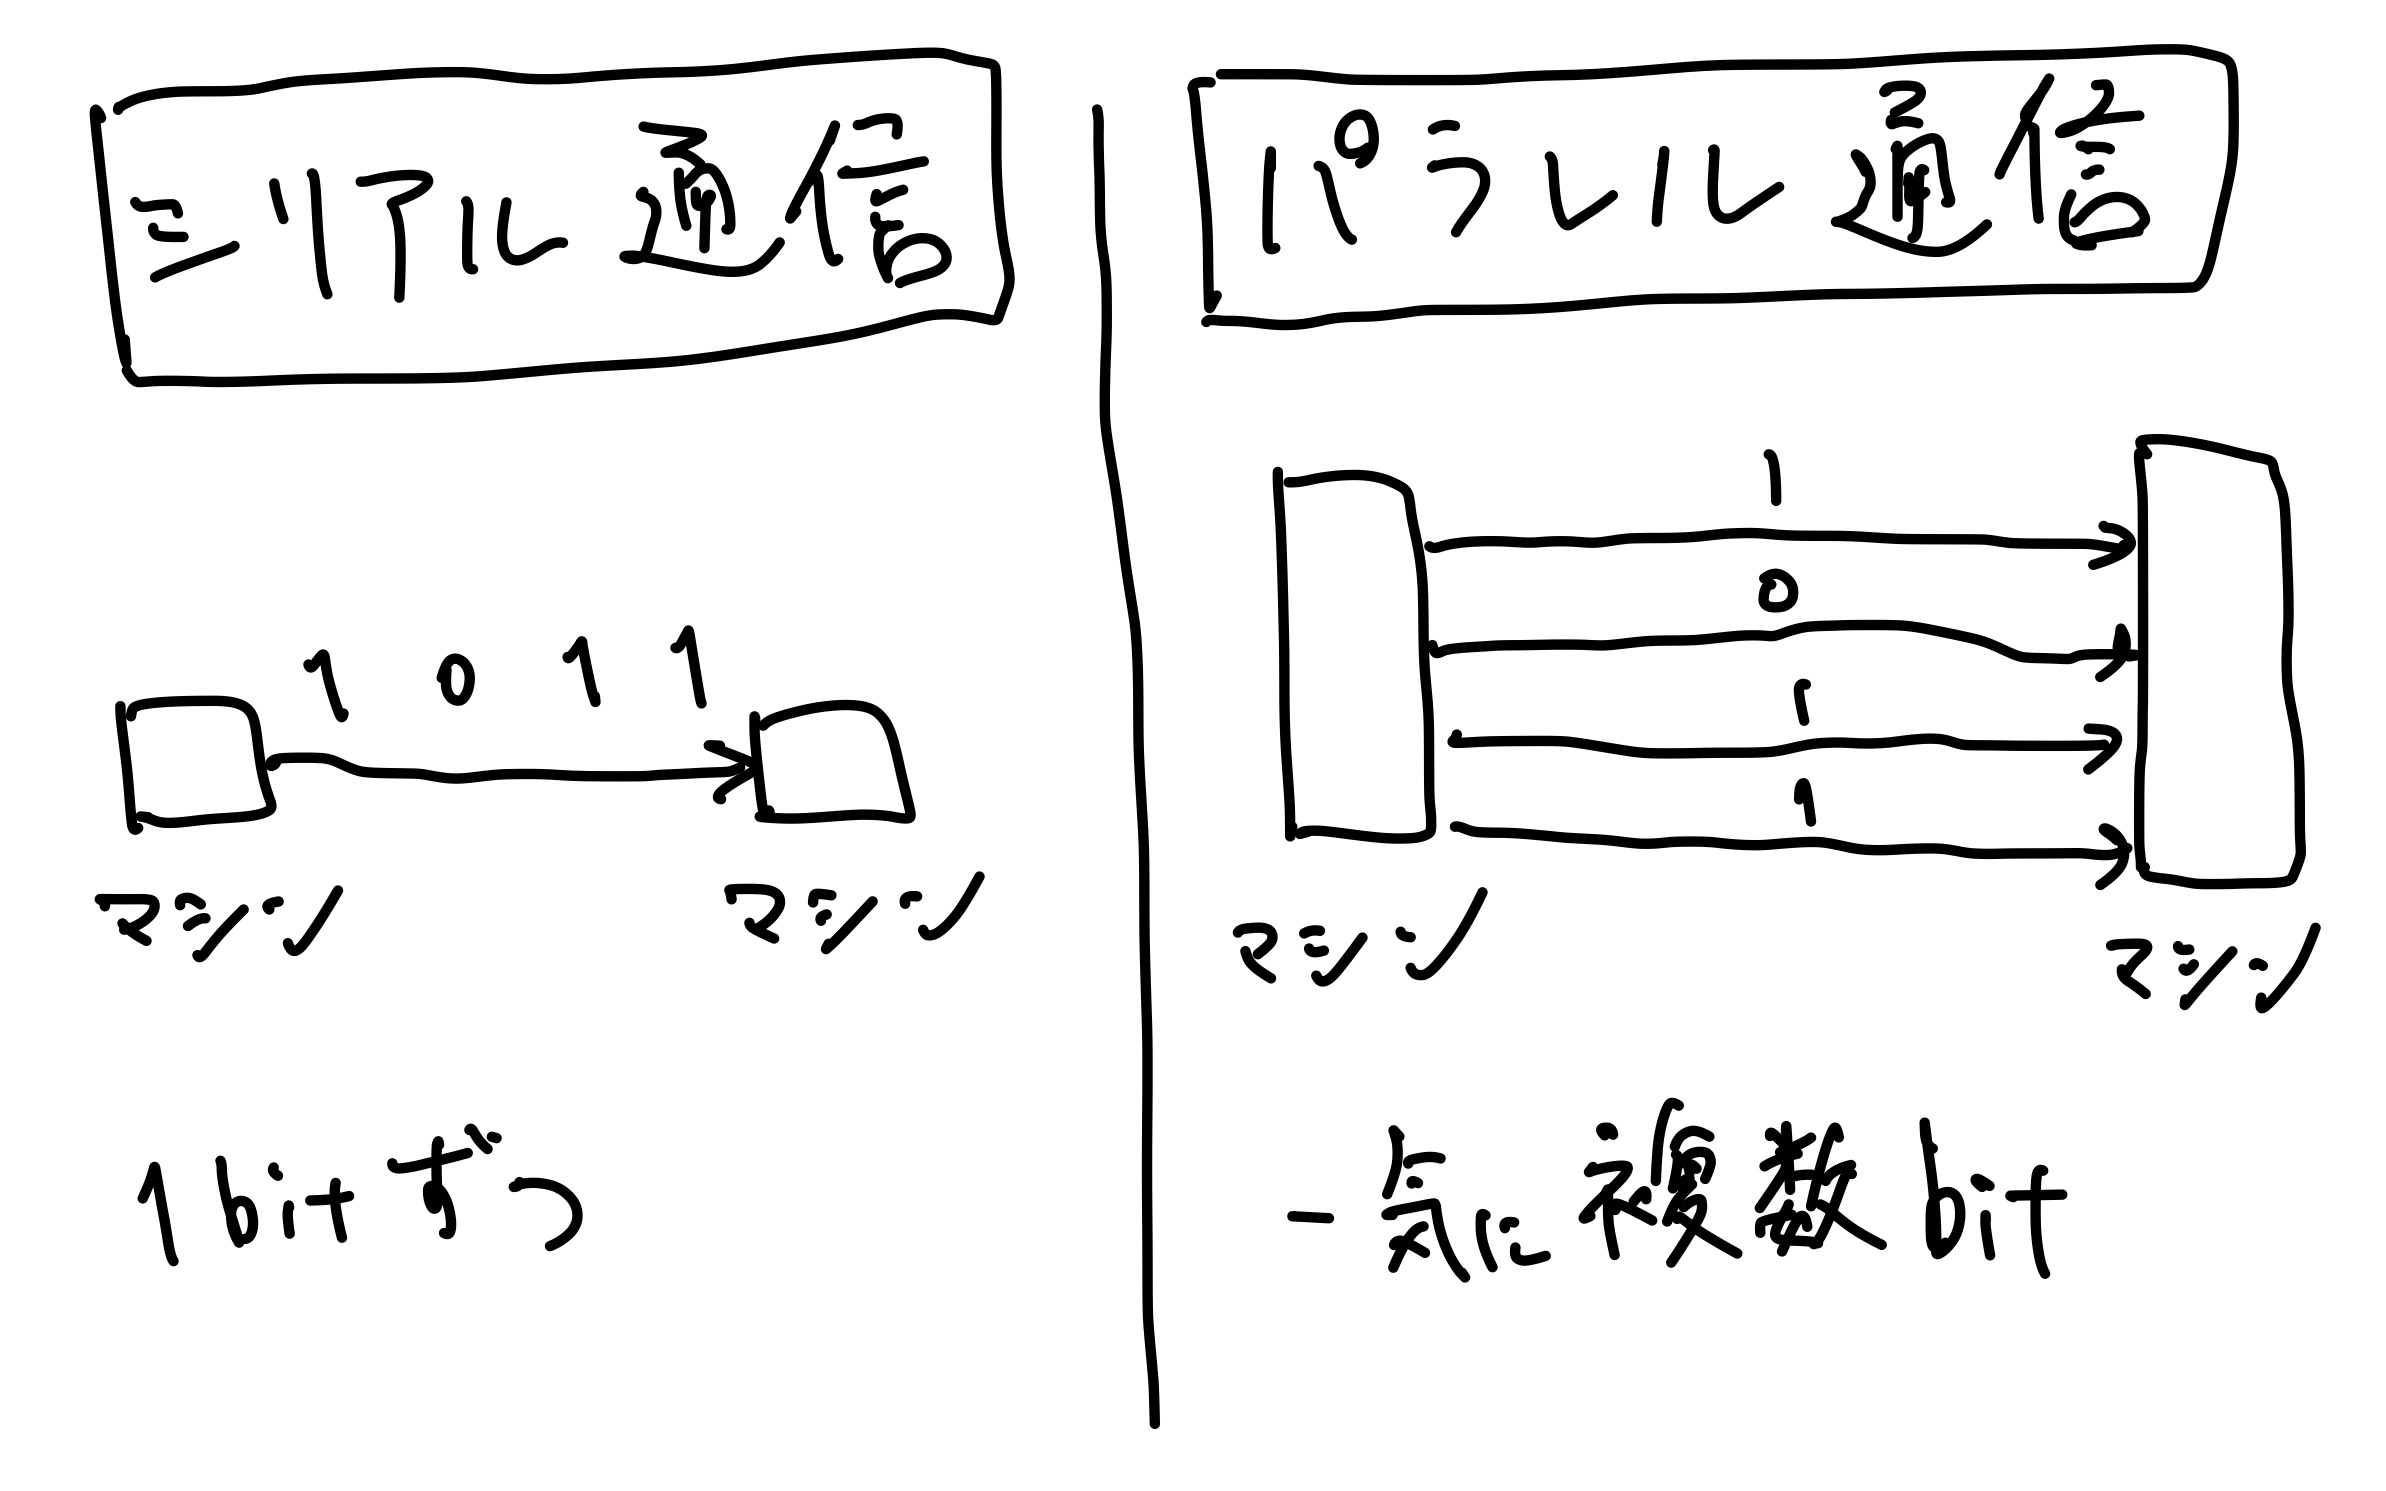 シリアル通信
1 0 1 1
マシン
マシン
1bitずつ
パラレル通信
1
0
1
1
マシン
マシン
一気に複数bit